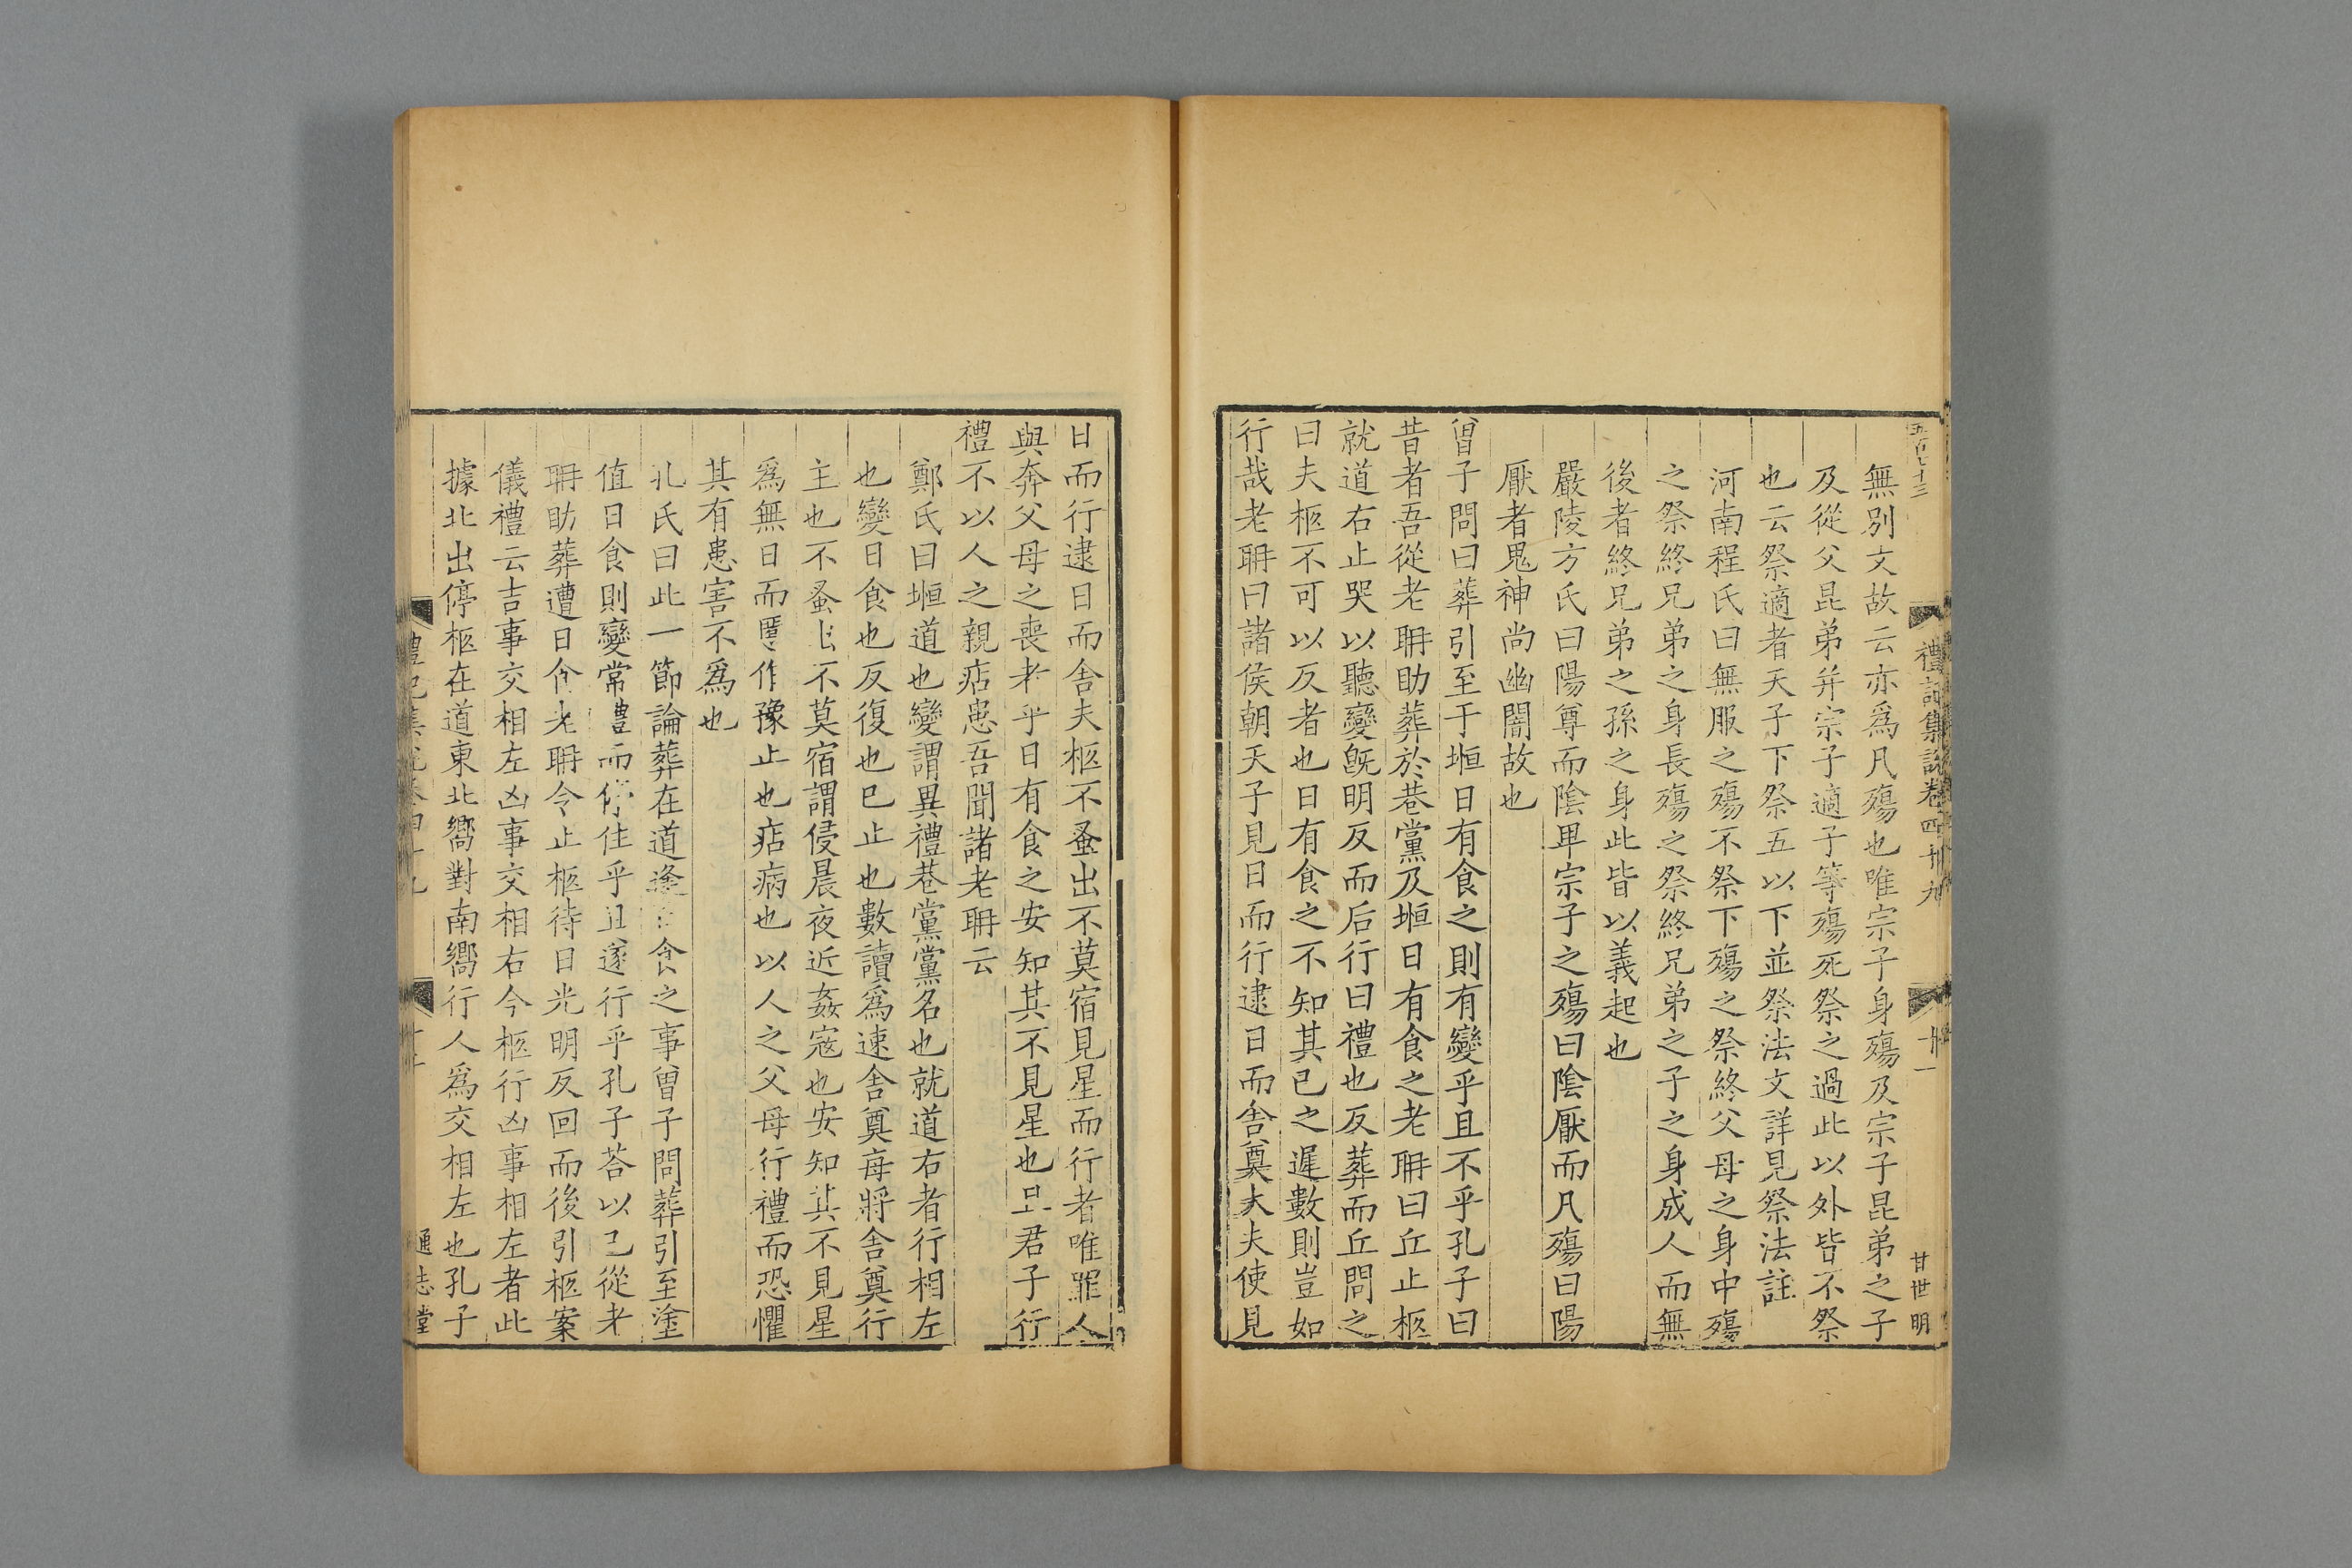 五百七十三
禮記集說卷四十九
十一
甘世明
無別文故云亦爲凡殤也唯宗子身殤及宗子昆弟之子
及從父昆弟并宗子適子等殤死祭之過此以外皆不祭
也云祭適者天子下祭五以下並祭法文詳見祭法註
河南程氏曰無服之殤不祭下殤之祭終父母之身中殤
之祭終兄弟之身長殤之祭終兄弟之子之身成人而無
後者終兄弟之孫之身此皆以義起也
嚴陵方氏曰陽尊而陰卑宗子之殤曰陰厭而凡殤曰陽
厭者鬼神尚幽闇故也
曾子問曰葬引至于堩日有食之則有變乎且不乎孔子曰
昔者吾從老耼助葬於巷黨及堩日有食之老耼曰丘止柩
就道右止哭以聽變旣明反而后行曰禮也反葬而丘問之
曰夫柩不可以反者也日有食之不知其已之遲數則豈如
行哉老耼曰諸侯朝天子見日而行逮日而舍奠大夫使見
日而行逮日而舍夫柩不蚤出不莫宿見星而行者唯罪人
與奔父母之喪者乎日有食之安知其不見星也且君子行
禮不以人之親痁患吾聞諸老耼云
鄭氏曰堩道也變謂異禮巷黨黨名也就道右者行相左
也變日食也反復也已止也數讀爲速舍奠每將舍奠行
主也不蚤出不莫宿謂侵晨夜近姦寇也安知其不見星
爲無日而慝作豫止也痁病也以人之父母行禮而恐懼
其有患害不爲也
孔氏曰此一節論葬在道逢日食之事曾子問葬引至塗
值日食則變常禮而停住乎且遂行乎孔子荅以己從老
耼助葬遭日食老耼令止柩待日光明反回而後引柩案
儀禮云吉事交相左凶事交相右今柩行凶事相左者此
據北出停柩在道東北嚮對南嚮行人爲交相左也孔子
禮記集說卷四十九
通志堂